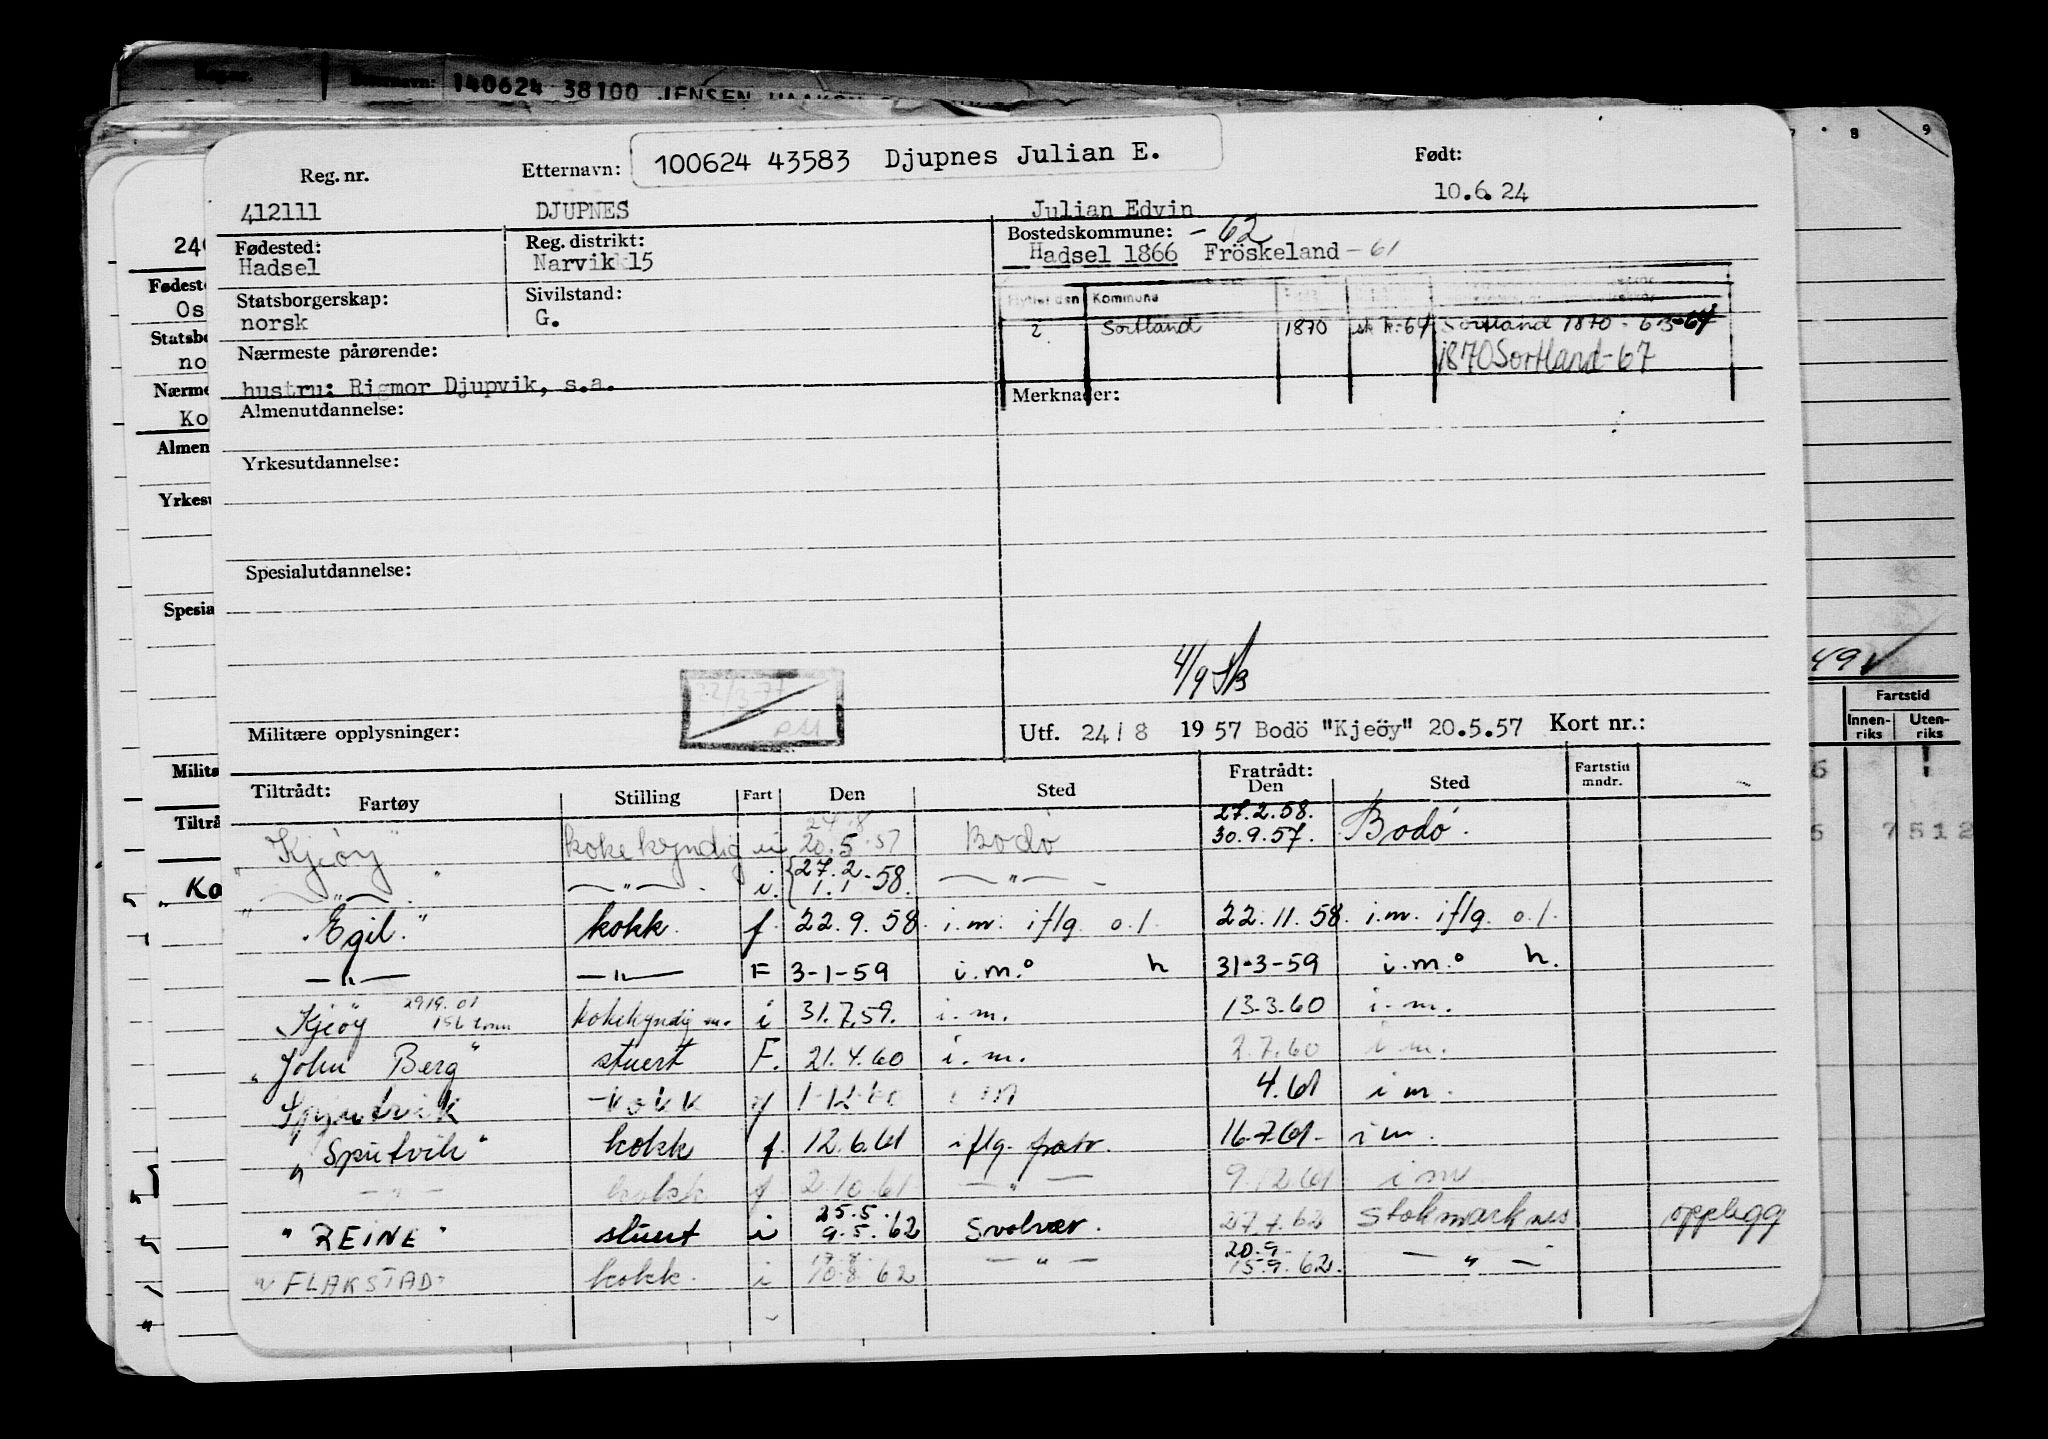 140624 38100 JENSEN
Reg. nr. Etternavn: 100624 43583 Djupnes Julian E. Født:
412111 DJUPNES Julian Edvin 10.6.24
Fødested: Reg. distrikt: Bostedskommune: - 62
Hadsel Narvik 15 Hadsel 1866 Fröskeland - 61
Statsborgerskap: Sivilstand: Flyttet den Kommune
norsk G. 2 Sortland 1870 Sortland 1870 - 63-64
Nærmeste pårørende: 1870 Sortland-67
hustru: Rigmor Djupvik, s.a.
Almenutdannelse: Merknader:
Yrkesutdannelse:
Spesialutdannelse:
4/9
22/3-77
Militære opplysninger: Utf. 24/8 1957 Bodö "Kjeöy" 20.5.57 Kort nr.:
Tiltrådt: Fartøy Stilling Fart Den Sted Fratrådt: Den Sted Fartstid mndr.
24.8 27.2.58.
"Kjeöy" kokekyndig i 20.5.57 Bodö 30.9.57. Bodö.
27.2
— " — — " — i. 1.1-58. — " —
"Egil." kokk. f 22.9.58. i.m. iflg. o.l. 22.11.58. i.m. iflg. o.l.
— " — — " — F 3-1-59 i.m. h 31-3-59 i.m. h.
"Kjeöy 2919.01 156 tonn kokekyndig m. i 31.7.59. i.m. 13.3.60 i.m.
"John Berg" stuert F. 21.4.60 i.m. 2.7.60 i m.
kokk f 1-12-60 i m 4.61 i m.
"Sputvik" kokk f. 12.6.61 iflg. fratr. 16.7.61. i m.
— " — kokk f 2.10.61 — " — 9.12.61 i m
25.5.
"REINE" stuert i 9.5.62 Svolvær. 27.7.62 Stokmarknes opplegg
20.9.
"FLAKSTAD" kokk. i 10.8.62 — " — 15.9.62. — " —
Fartstid
Innen-riks Uten-riks
49
7512